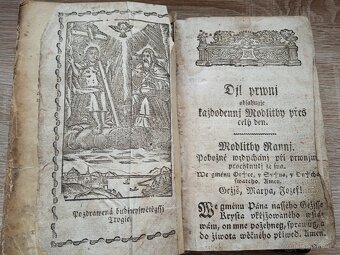 Pozdrawena budiž neyswětěgssj
Trogic.
Djl prwnj
obsahuge
každodennj Modlitby přes
celý den.
Modlitby Rannj.
Pobožné wzdychánj při prwnjm
procýtnutj ze sna.
We gménu Otce, y Syna, y Ducha
swatého, Amen.
Gežjš, Marya, Jozef!
We gménu Pána nassého Gežjsse
Krysta vkřižowaného wstá-
wám, on mne požehney, sprawůg, a
do žiwota wěčného přiweď. Amen.